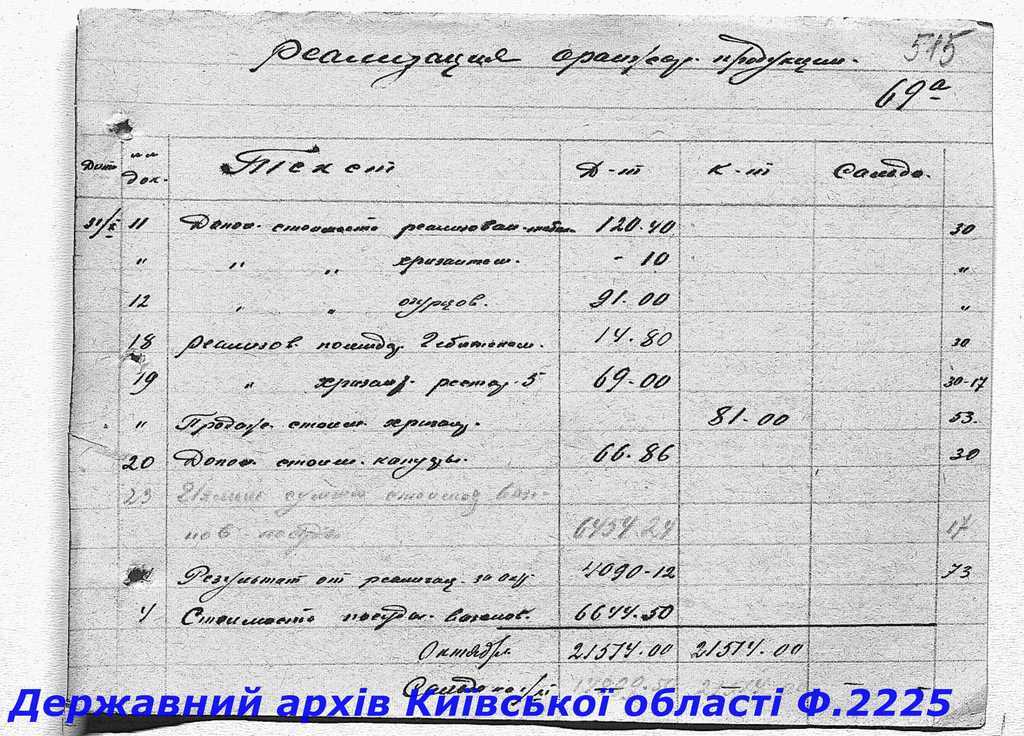 515
Реализация оранжер. продукции.
69а
Дата № № док. Текст Д-т К-т Сальдо.
31/X 11 Допол. стоимость реализован. 120.40 30
" " " хризантем. - 10 "
12 " " огурцов. 91.00 "
18 реализов. помидор. 14.80 30
19 " хризант. рестор. 5 69.00 30-17
" " Продаж. стоим. хризант. 81-00 53.
20 Допол. стоим. капусты. 66.86 30
23 сумма
нов посуды 6454.24 17
Результат от реализац. за окт. 4090-12 73
4 Стоимость посуды вазонов. 6644.50
Октябрь 21514.00 21514.00
Сальдо на 1/XI — —
Державний архів Київської області Ф.2225